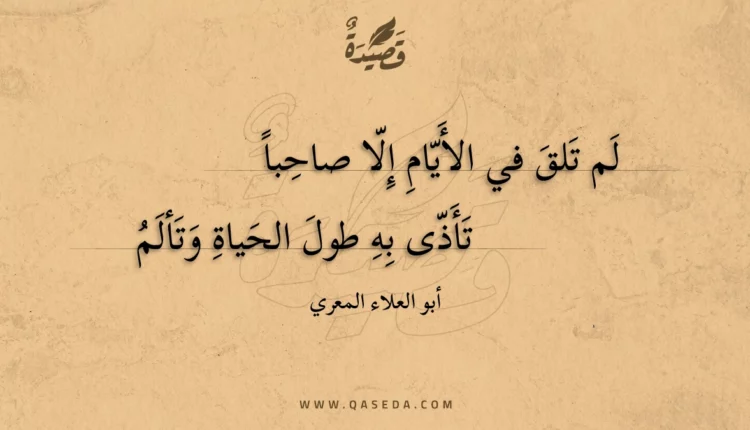 قَصِيدَةٌ
لَم تَلقَ في الأَيّامِ إِلّا صاحِباً
تَأَذّى بِهِ طولَ الحَياةِ وَتَألَمُ
أبو العلاء المعري
WWW.QASEDA.COM